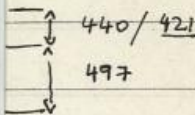 440/421
497